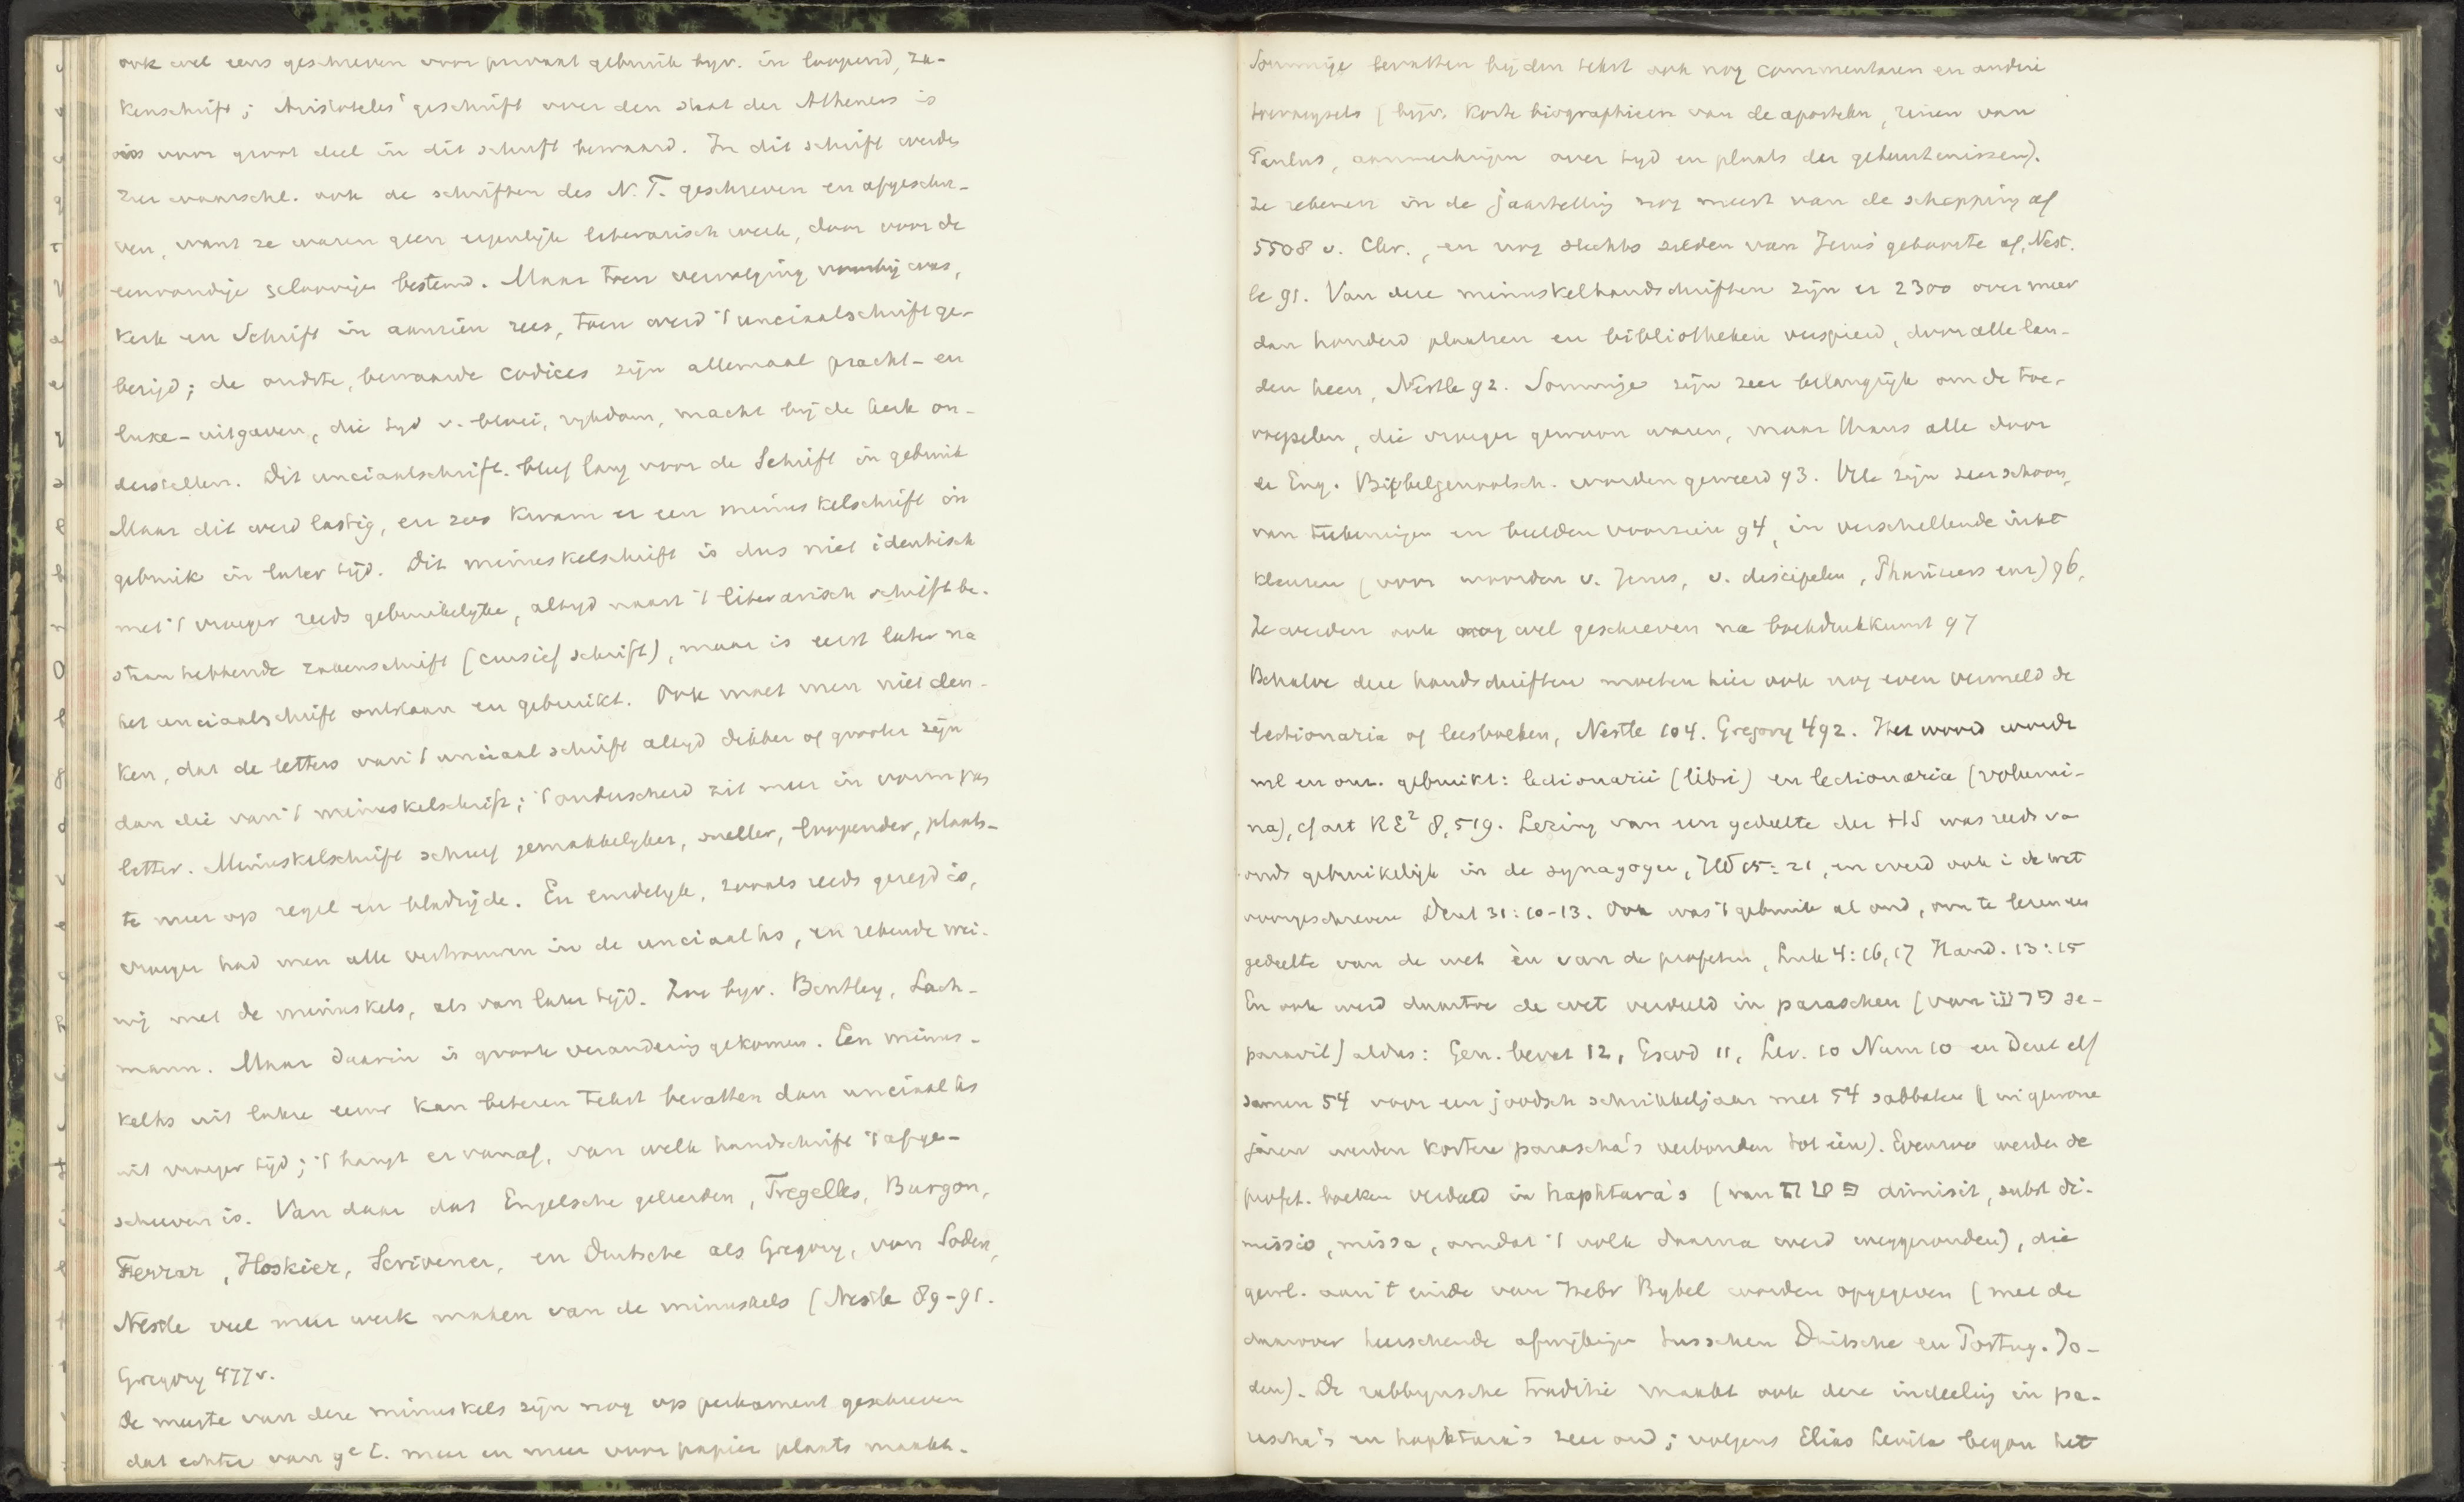 ook wel eens geschreven voor privaat gebruik byv. in loopend, za-
kenschrift; Aristoteles' geschrift over den staat der Atheners is
ons voor groot deel in dit schrift bewaard. In dit schrift werden
zeer waarschl. ook de schriften des N.T. geschreven en afgeschre-
ven, want ze waren geen eigenlijk literarisch werk, door voor de
eenvoudige geloovigen bestemd. Maar toen vervolging voorbij was,
kerk en Schrift in aanzien rees, toen werd 't unciaalschrift ge-
bezigd; de oudste, bewaarde codices zijn allemaal pracht- en
luxe-uitgaven, die tyd v. bloei, rykdom, macht bij de kerk on-
derstellen. Dit unciaalschrift bleef lang voor de Schrift in gebruik
Maar dit werd lastig, en zoo kwam er een minuskelschrift in
gebruik in later tijd. Dit minuskelschrift is dus niet identisch
met 't vroeger reeds gebruikelyke, altyd naast 't literarisch schrift be-
staan hebbende zakenschrift (cursief schrift), maar is eerst later na
het unciaalschrift ontstaan en gebruikt. Ook moet men niet den-
ken, dat de letters van 't unciaal schrift altyd dikker of grooter zijn
dan die van 't minuskelschrift; 't onderscheid zit meer in vorm van
letter. Minuskelschrift schreef gemakkelyker, sneller, loopender, plaats-
te meer op regel en bladzijde. En eindelyk, zooals reeds gezegd is,
vroeger had men alle vertrouwen in de unciaal hs, en rekende wei-
nig met de minuskels, als van later tijd. Zoo byv. Bentley, Lach-
mann. Maar daarin is groote verandering gekomen. Een minus-
kelhs uit latere eeuw kan beteren tekst bevatten dan unciaal hs
uit vroeger tijd; 't hangt er vanaf, van welk handschrift 't afge-
schreven is. Van daar dat Engelsche geleerden, Tregelles, Burgon,
Ferrar, Hoskier, Scrivener, en Duitsche als Gregory, von Soden,
Nestle veel meer werk maken van de minuskels (Nestle 89-91.
Gregory 477v.
De meeste van deze minuskels zijn nog op perkament geschreven
dat echter van 9e E. meer en meer voor papier plaats maakt.
Sommige bevatten bij den tekst ook nog commentaren en andere
toevoegsels (bijv. korte biographieen van de apostelen, reizen van
Paulus, aanmerkingen over tyd en plaats der gebeurtenissen).
Ze rekenen in de jaartelling nog meest van de schepping af
5508 v. Chr., en nog slechts zelden van Jezus' geboorte af, Nest.
le 91. Van deze minuskelhandschriften zijn er 2300 over meer
dan honderd plaatsen en bibliotheken verspreid, door alle lan-
den heen, Nestle 92. Sommige zijn zeer belangrijk om de toe-
voegselen, die vroeger gewoon waren, maar thans alle door
de Eng. Bijbelgenootsch. worden geweerd 93. Vele zijn zeer schoon,
van teekeningen en beelden voorzien 94, in verschillende inkt
kleuren (voor woorden v. Jezus, v. discipelen, Pharizeers enz) 96,
Ze werden ook nog wel geschreven na boekdrukkunst 97
Behalve deze handschriften moeten hier ook nog even vermeld de
lectionaria of leesboeken, Nestle 104. Gregory 492. Het woord wordt
ml en onz. gebruikt: lectionarii (libri) en lectionaria (volumi-
na), cf art RE² 8,519. Lezing van een gedeelte der HS was reeds va
ouds gebruikelijk in de synagoge, Hd 15:21, en werd ook i de wet
voorgeschreven Deut 31:10-13. Ook was 't gebruik al oud, om te lezen een
gedeelte van de wet èn van de profeten, Luk 4:16,17 Hand. 13:15
En ook werd daartoe de wet verdeeld in paraschen (van פרש se-
paravit) aldus: Gen. bevat 12, Exod 11, Lev. 10 Num 10 en Deut elf
samen 54 voor een joodsch schrikkeljaar met 54 sabbaten (in gewone
jaren werden kortere parascha's verbonden tot één). Evenzoo werden de
profet. boeken verdeeld in haphtara's (van פטר dimisit, subst di-
missio, missa, omdat 't volk daarna werd weggezonden), die
gewl. aan 't einde van Hebr Bybel worden opgegeven (met de
daarover heerschende afwijkingen tusschen Duitsche en Portug. Jo-
den). De rabbynsche traditie maakt ook deze indeeling in pa-
rascha's en haphtara's zeer oud; volgens Elias Levita begon het